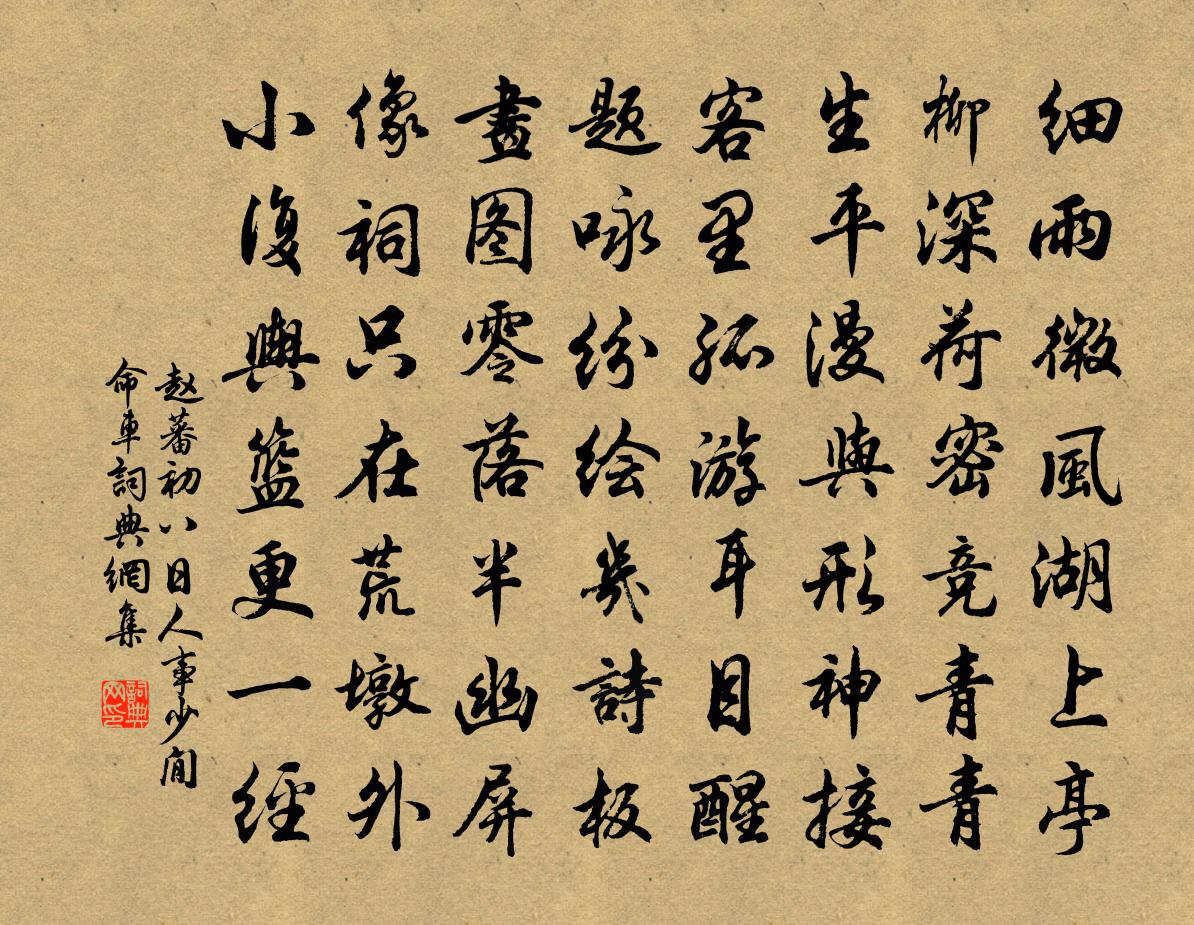 细雨微風湖上亭
柳深荷密竞青青
生平漫與形神接
客里孤游耳目醒
题咏纷绘幾詩板
畫图零落半幽屏
像祠只在荒墩外
小復輿籃更一經
赵蕃初八日人事少閒
命車詞典網集
詞典网印